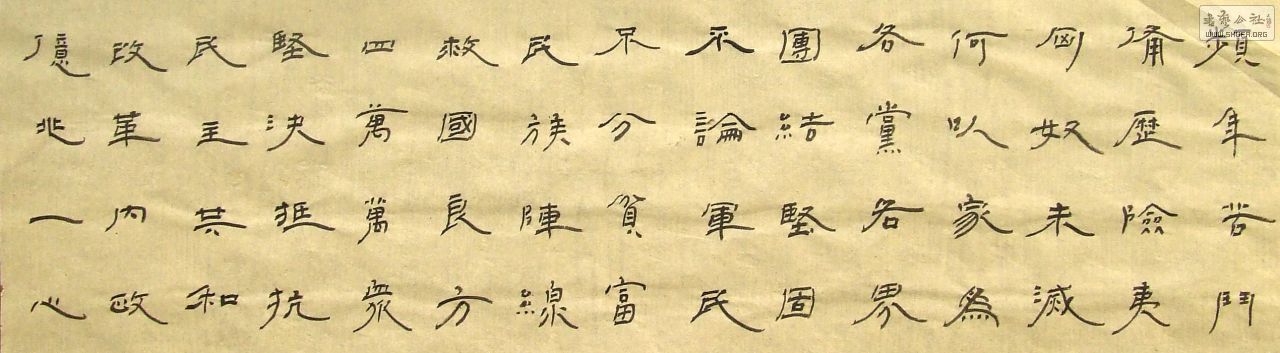 頻年苦鬥
備歷險夷
匈奴未滅
何以家為
各黨各界
團結堅固
不論軍民
不分貧富
民族陣線
救國良方
四萬萬眾
堅決抵抗
民主共和
改革內政
億兆一心
書藝公社
WWW.SHGER.ORG